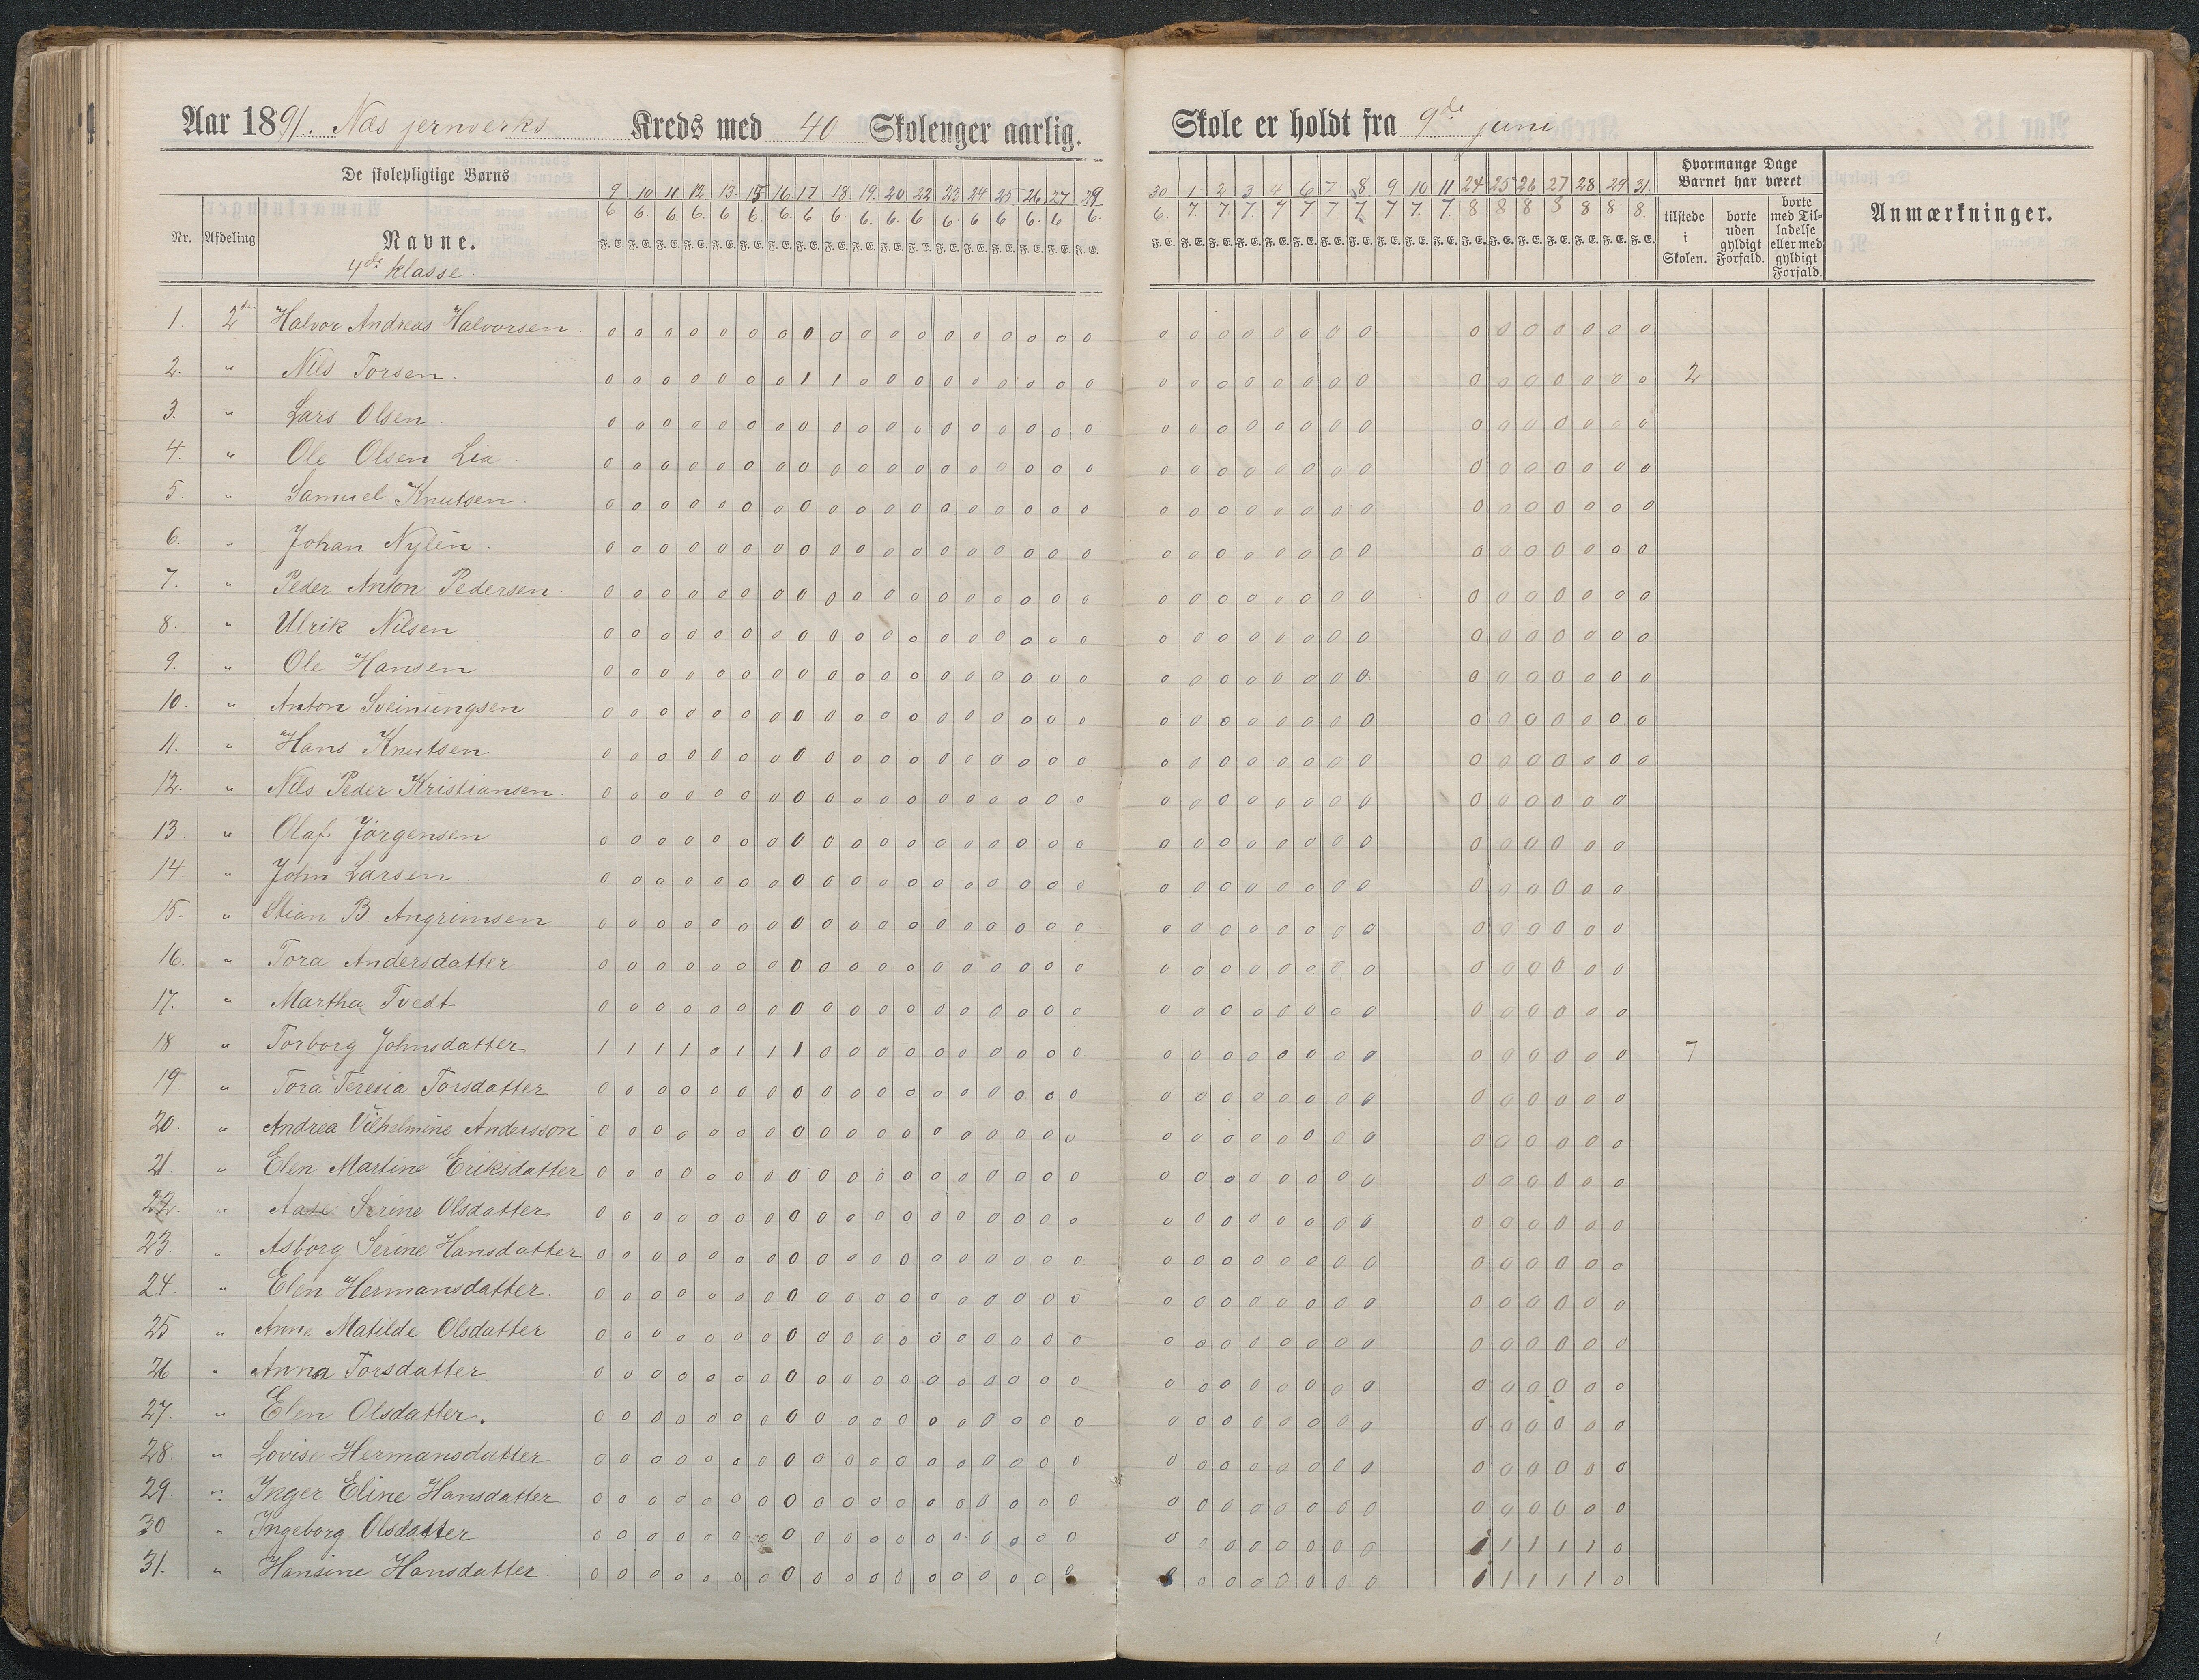 Aar 1891. Næs jernverks Kreds med 40 Skoleuger aarlig.
Skole er holdt fra 9de juni
De skolepligtige Børns
Nr. Afdeling Navne.
4de klasse.
9 10 11 12 13 15 16 17 18 19 20 22 23 24 25 26 27 29
6 6 6 6 6 6 6 6 6 6 6 6 6 6 6 6 6 6
30 1 2 3 4 6 7 8 9 10 11 24 25 26 27 28 29 31
6 7 7 7 7 7 7 7 7 7 7 8 8 8 8 8 8 8
F. E.
Hvormange Dage Barnet har været
tilstede i Skolen.
borte uden gyldigt Forfald.
borte med Tilladelse eller med gyldigt Forfald.
Anmærkninger.
1. 2den Halvor Andreas Halvorsen.
2. " Nils Torsen. 2
3. " Lars Olsen.
4. " Ole Olsen Lia
5. " Samuel Knutsen.
6. " Johan Nylén.
7. " Peder Anton Pedersen.
8. " Ulrik Nilsen
9. " Ole Hansen.
10. " Anton Sveinungsen
11. " Hans Knutsen
12. " Nils Peder Kristiansen.
13. " Olaf Jørgensen
14. " John Larsen.
15. " Stian B. Angrimsen.
16. " Tora Andersdatter
17. " Martha Tvedt
18 " Torborg Johnsdatter 7
19 " Tora Teresia Torsdatter
20. " Andrea Vilhelmine Andersson
21. " Elen Martine Eriksdatter
22. " Aase Serine Olsdatter
23. " Asborg Serine Hansdatter
24. " Elen Hermansdatter.
25 " Anne Matilde Olsdatter
26 " Anna Torsdatter
27. " Elen Olsdatter.
28. " Lovise Hermansdatter
29. " Inger Eline Hansdatter
30 " Ingeborg Olsdatter
31. " Hansine Hansdatter.